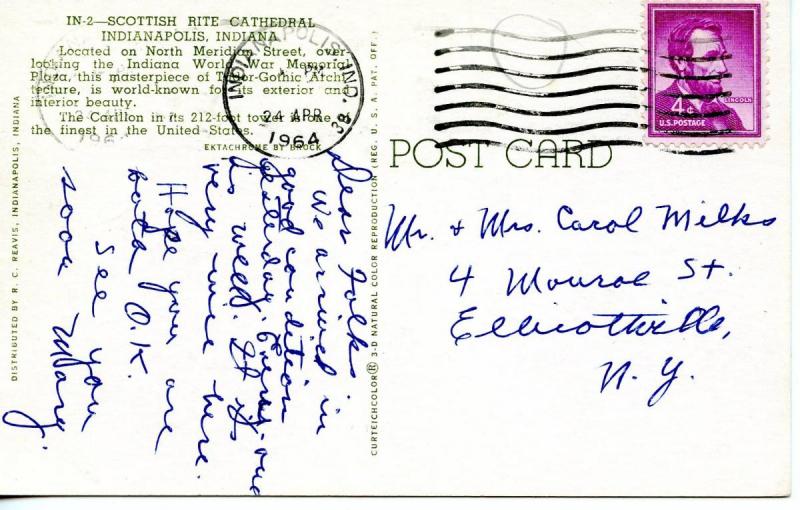 IN-2—SCOTTISH RITE CATHEDRAL
INDIANAPOLIS, INDIANA
Located on North Meridian Street, over-
looking the Indiana World War Memorial
Plaza, this masterpiece of Tudor-Gothic Archi-
tecture, is world-known for its exterior and
interior beauty.
The Carillon in its 212-foot tower is one of
the finest in the United States.
EKTACHROME BY BROCK
INDIANAPOLIS, IND. 38
24 APR
1964
4¢
LINCOLN
U.S. POSTAGE
POST CARD
DISTRIBUTED BY R. C. REAVIS, INDIANAPOLIS, INDIANA
CURTEICHCOLOR® 3-D NATURAL COLOR REPRODUCTION (REG. U. S. A. PAT. OFF.)
Dear Folks:
We arrived in
good condition
yesterday. Every-one
is well. It is
very nice here.
Hope you are
both O.K.
See you
soon Mary.
Mr. & Mrs. Carol Milks
4 Monroe St.
Ellicottville,
N.Y.